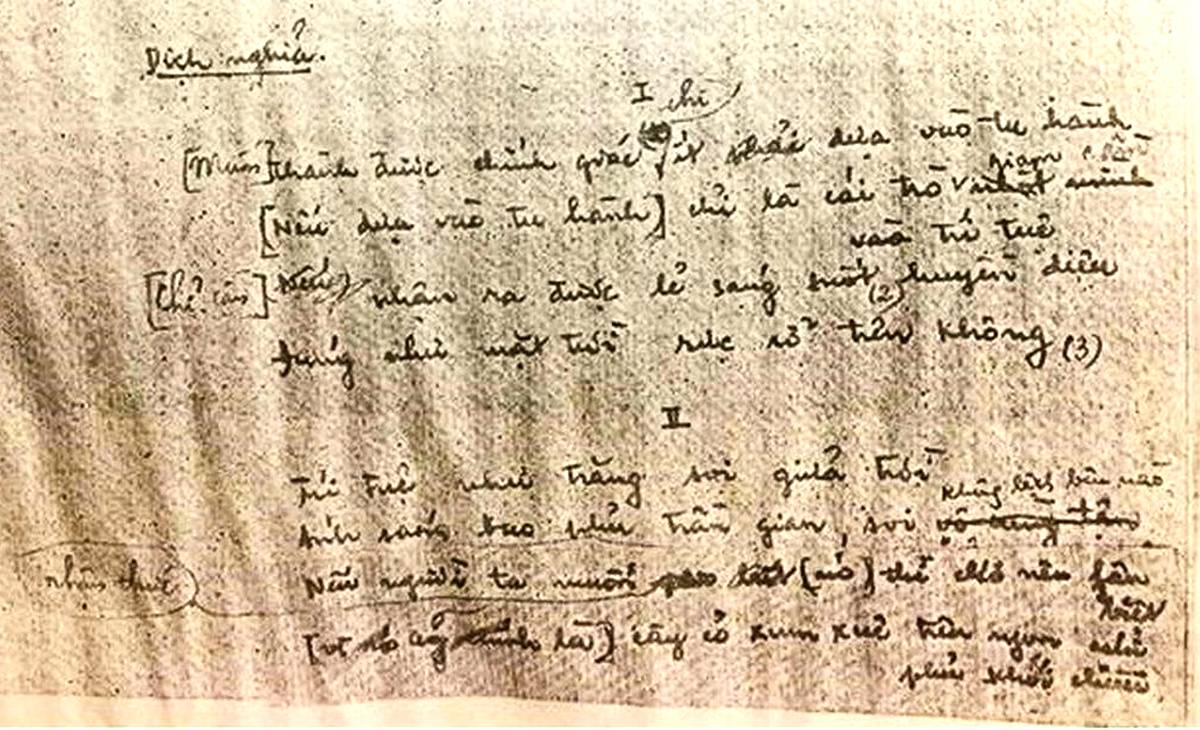 Dịch nghĩa.
I
chỉ
[Muốn] thành được chính giác ít dựa vào tu hành
giam
[Nếu dựa vào tu hành] chỉ là cái trò
vào trí tuệ
[Chỉ cần] nhận ra được lẽ sáng suốt (2) huyền diệu
Đúng như mặt trời rực rỡ trên không (3)
II
Trí tuệ như trăng soi giữa trời
không biết bến nào
Ánh sáng bao phủ trần gian, soi vô cùng tận
nhận thức
Nếu người ta muốn [nó] thì chớ nên phân
biệt
[vì nó cũng là] cây cỏ xum xuê trên ngọn núi
phủ khói chiều